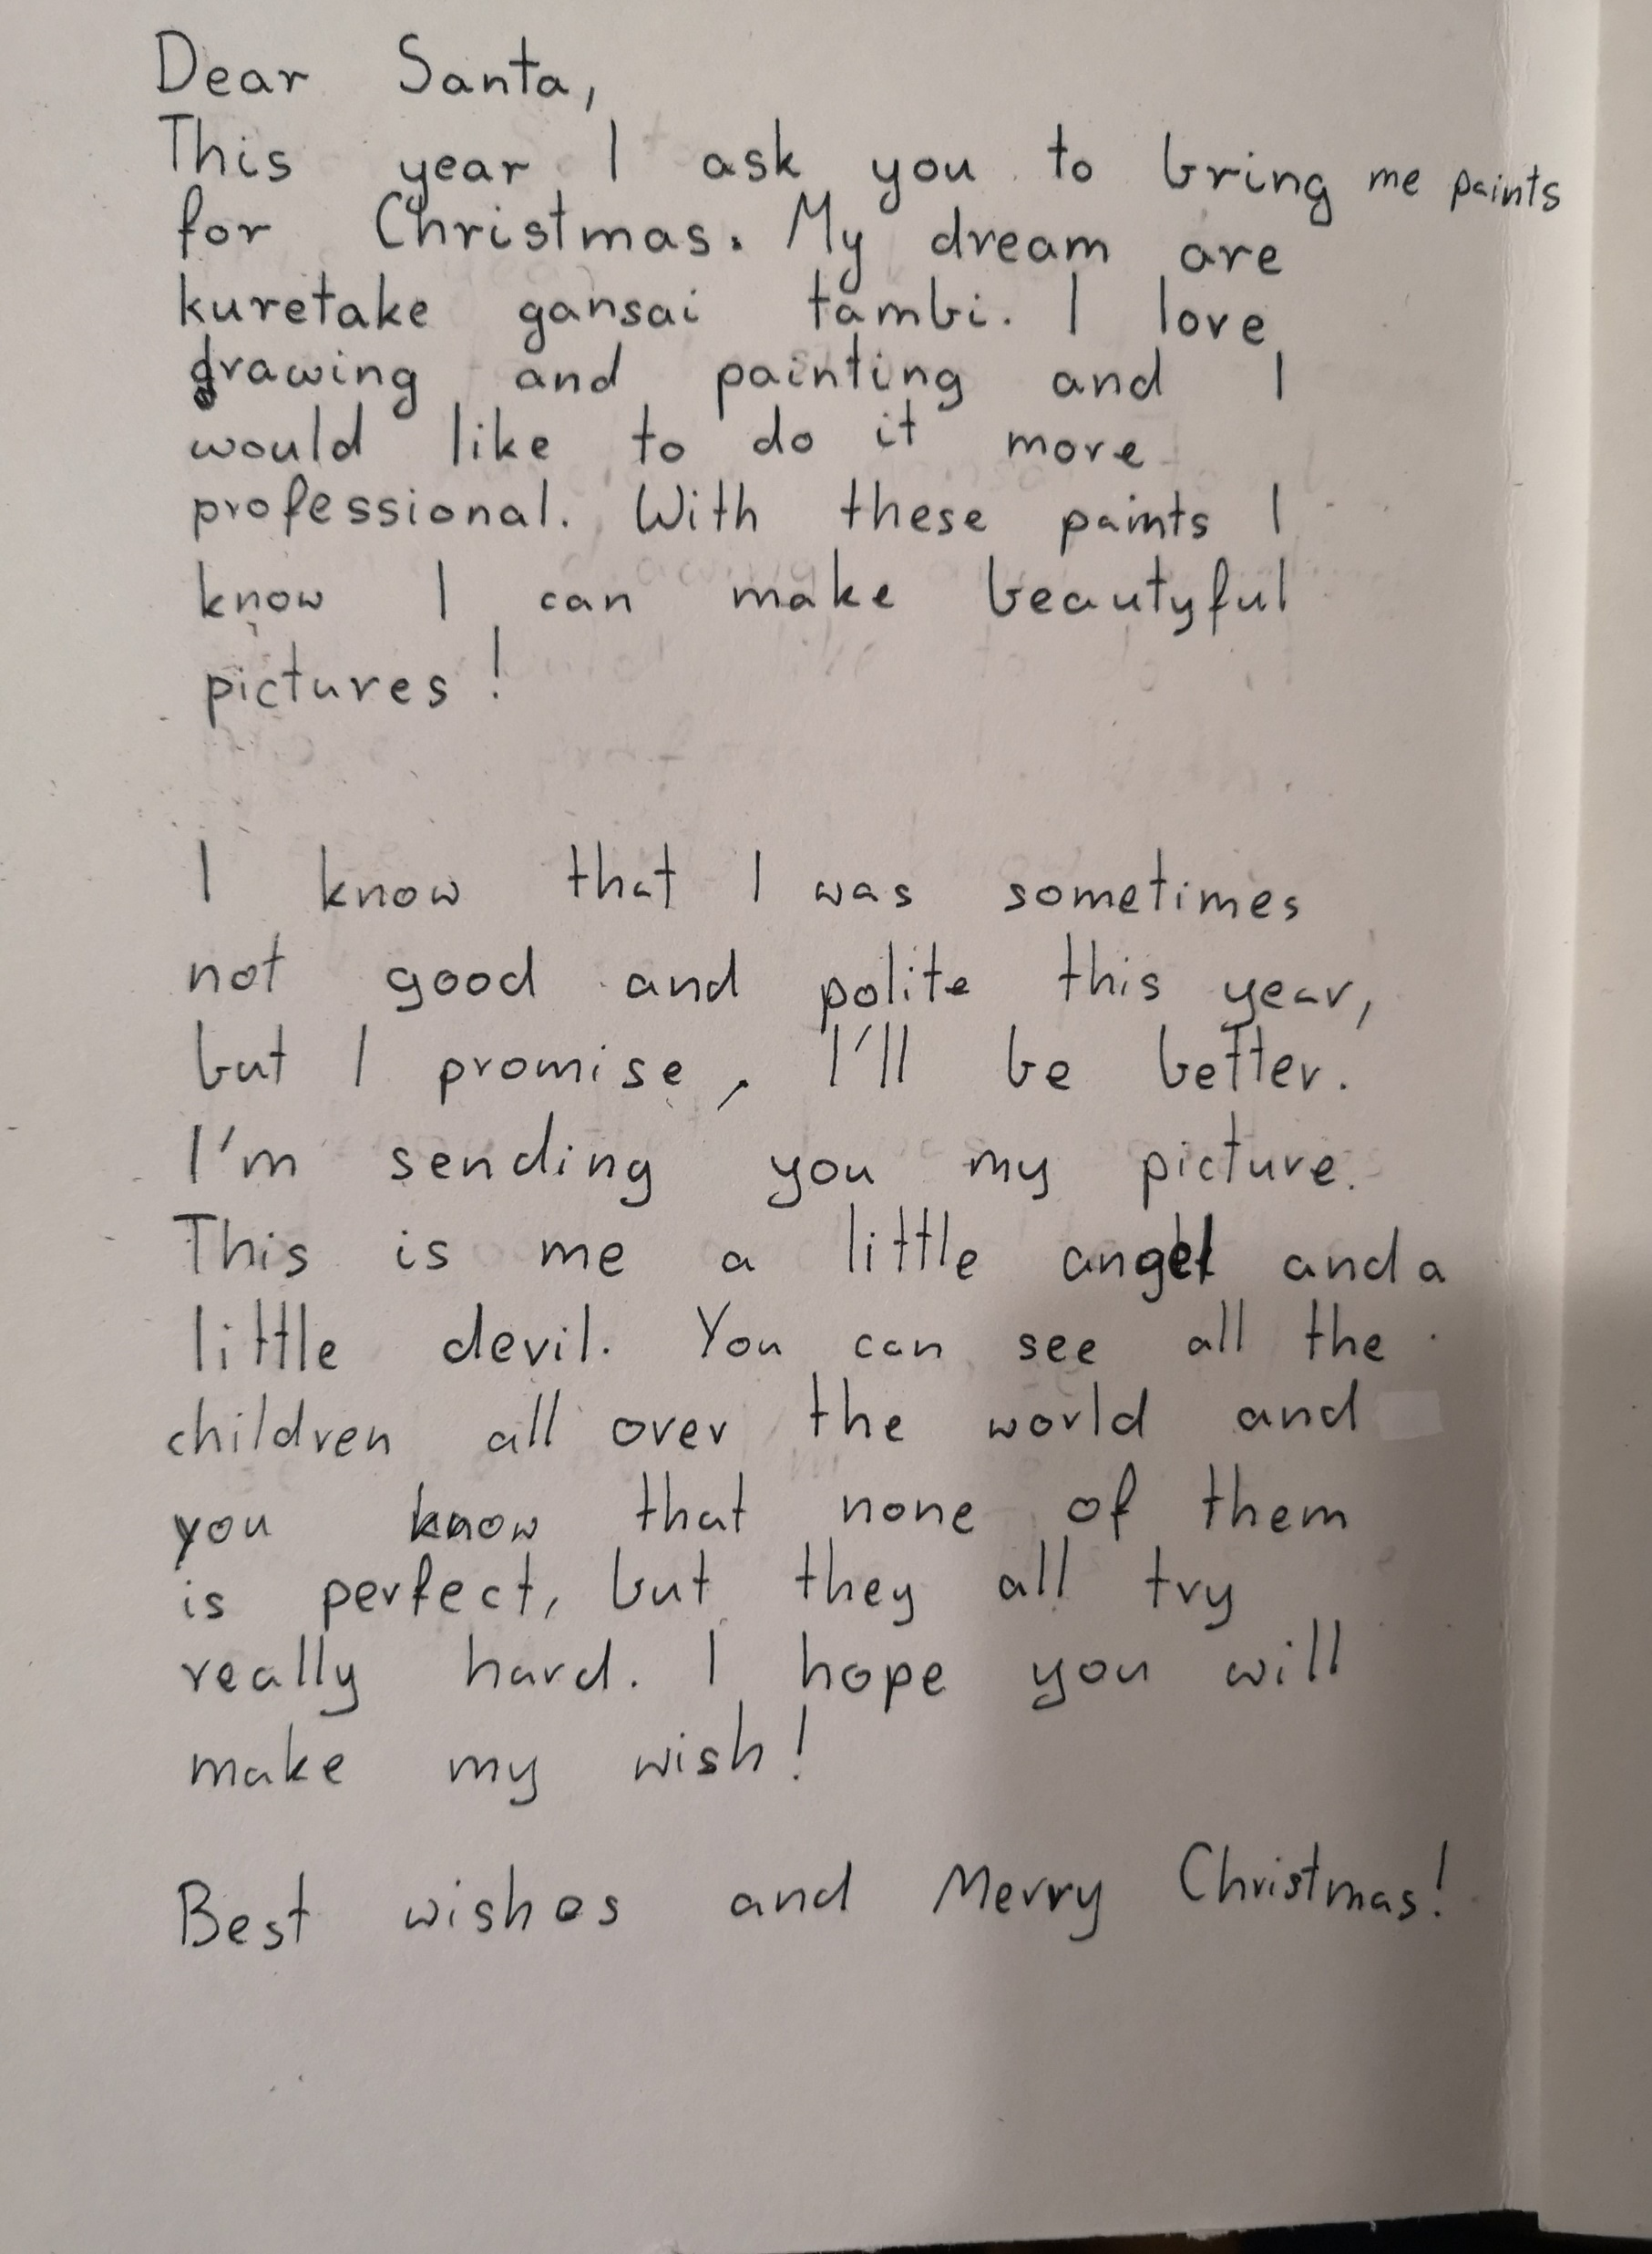 Dear Santa,
This year I ask you to bring me paints
for Christmas. My dream are
kuretake gansai tambi. I love
drawing and painting and I
would like to do it more
professional. With these paints I
know I can make beautyful
pictures!
I know that I was sometimes
not good and polite this year,
but I promise, I'll be better.
I'm sending you my picture.
This is me a little angel and a
little devil. You can see all the
children all over the world and
you know that none of them
is perfect, but they all try
really hard. I hope you will
make my wish!
Best wishes and Merry Christmas!